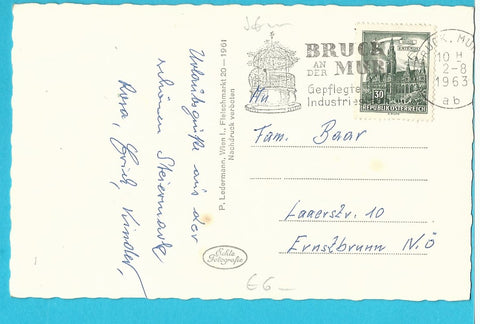 Urlaubsgrüße aus der
schönen Steiermark
Rosa, Erich, Kinder,
P. Ledermann, Wien I., Fleischmarkt 20 — 1961
Nachdruck verboten
Echte
Fotografie
BRUCK
AN
DER MUR
Gepflegte
Industries
BRUCK, MUR
10
2-8
1963
ab
30
REPUBLIK ÖSTERREICH
Fam. Baar
Laaerstr. 10
Ernstbrunn N.Ö
E6—